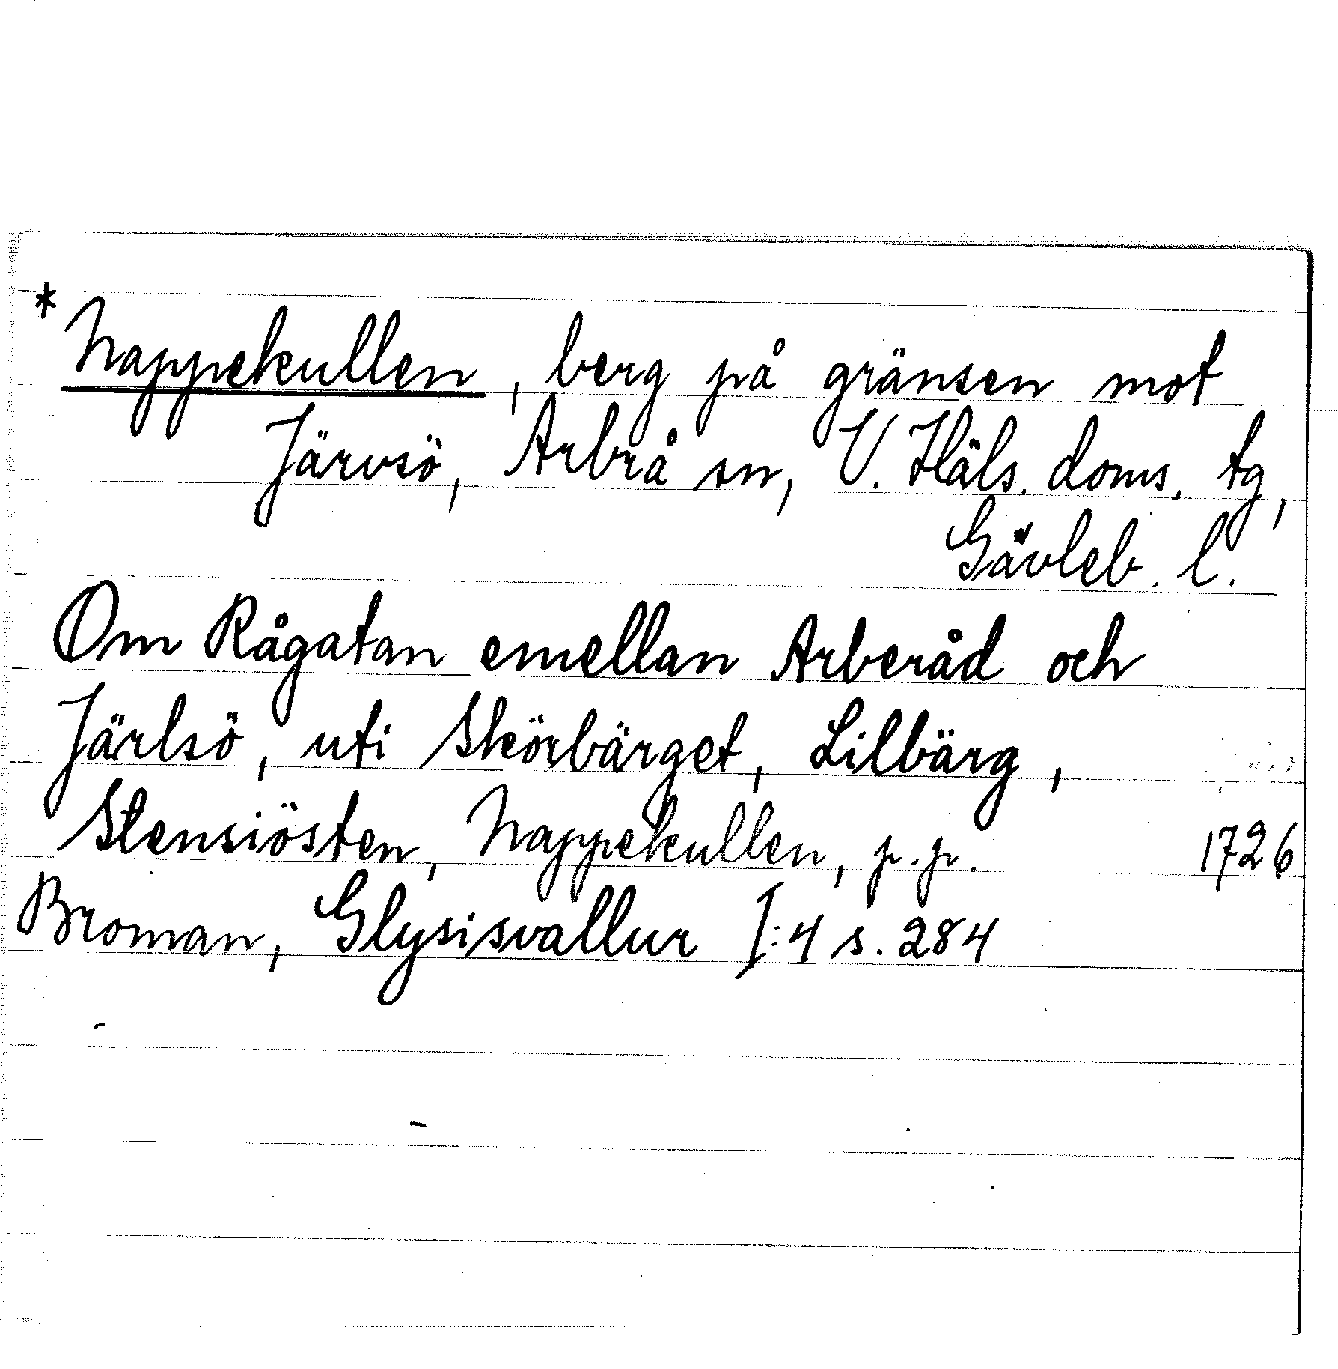 * Nappekullen, berg på gränsen mot
Järvsö, Arbrå sn, V. Häls. doms. tg,
Gävleb. l.
Om Rågatan emellan Arberåd och
Järlsö, uti Skörbärget, Lilbärg,
Stensiösten, Nappekullen, p.p. 1726
Broman, Glysisvallur I:4 s. 284